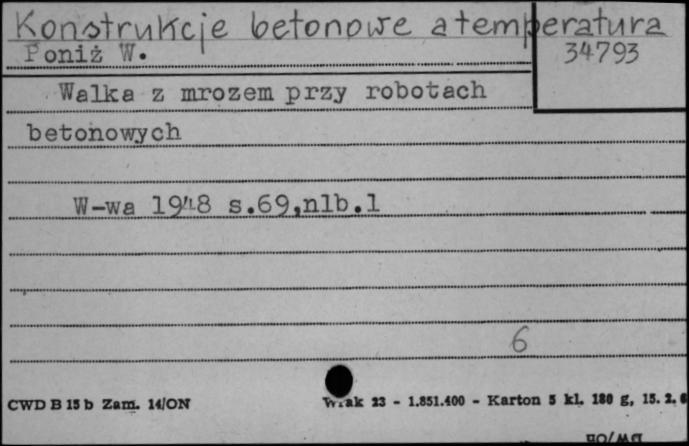 Konstrukcje betonowe a temperatura
Poniż W.
34793
Walka z mrozem przy robotach
betonowych
W-wa 1948 s.69,nlb.1
6
CWD B 15 b Zam. 14/ON
23 - 1.851.400 - Karton 5 kl. 180 g, 15. 2. 6